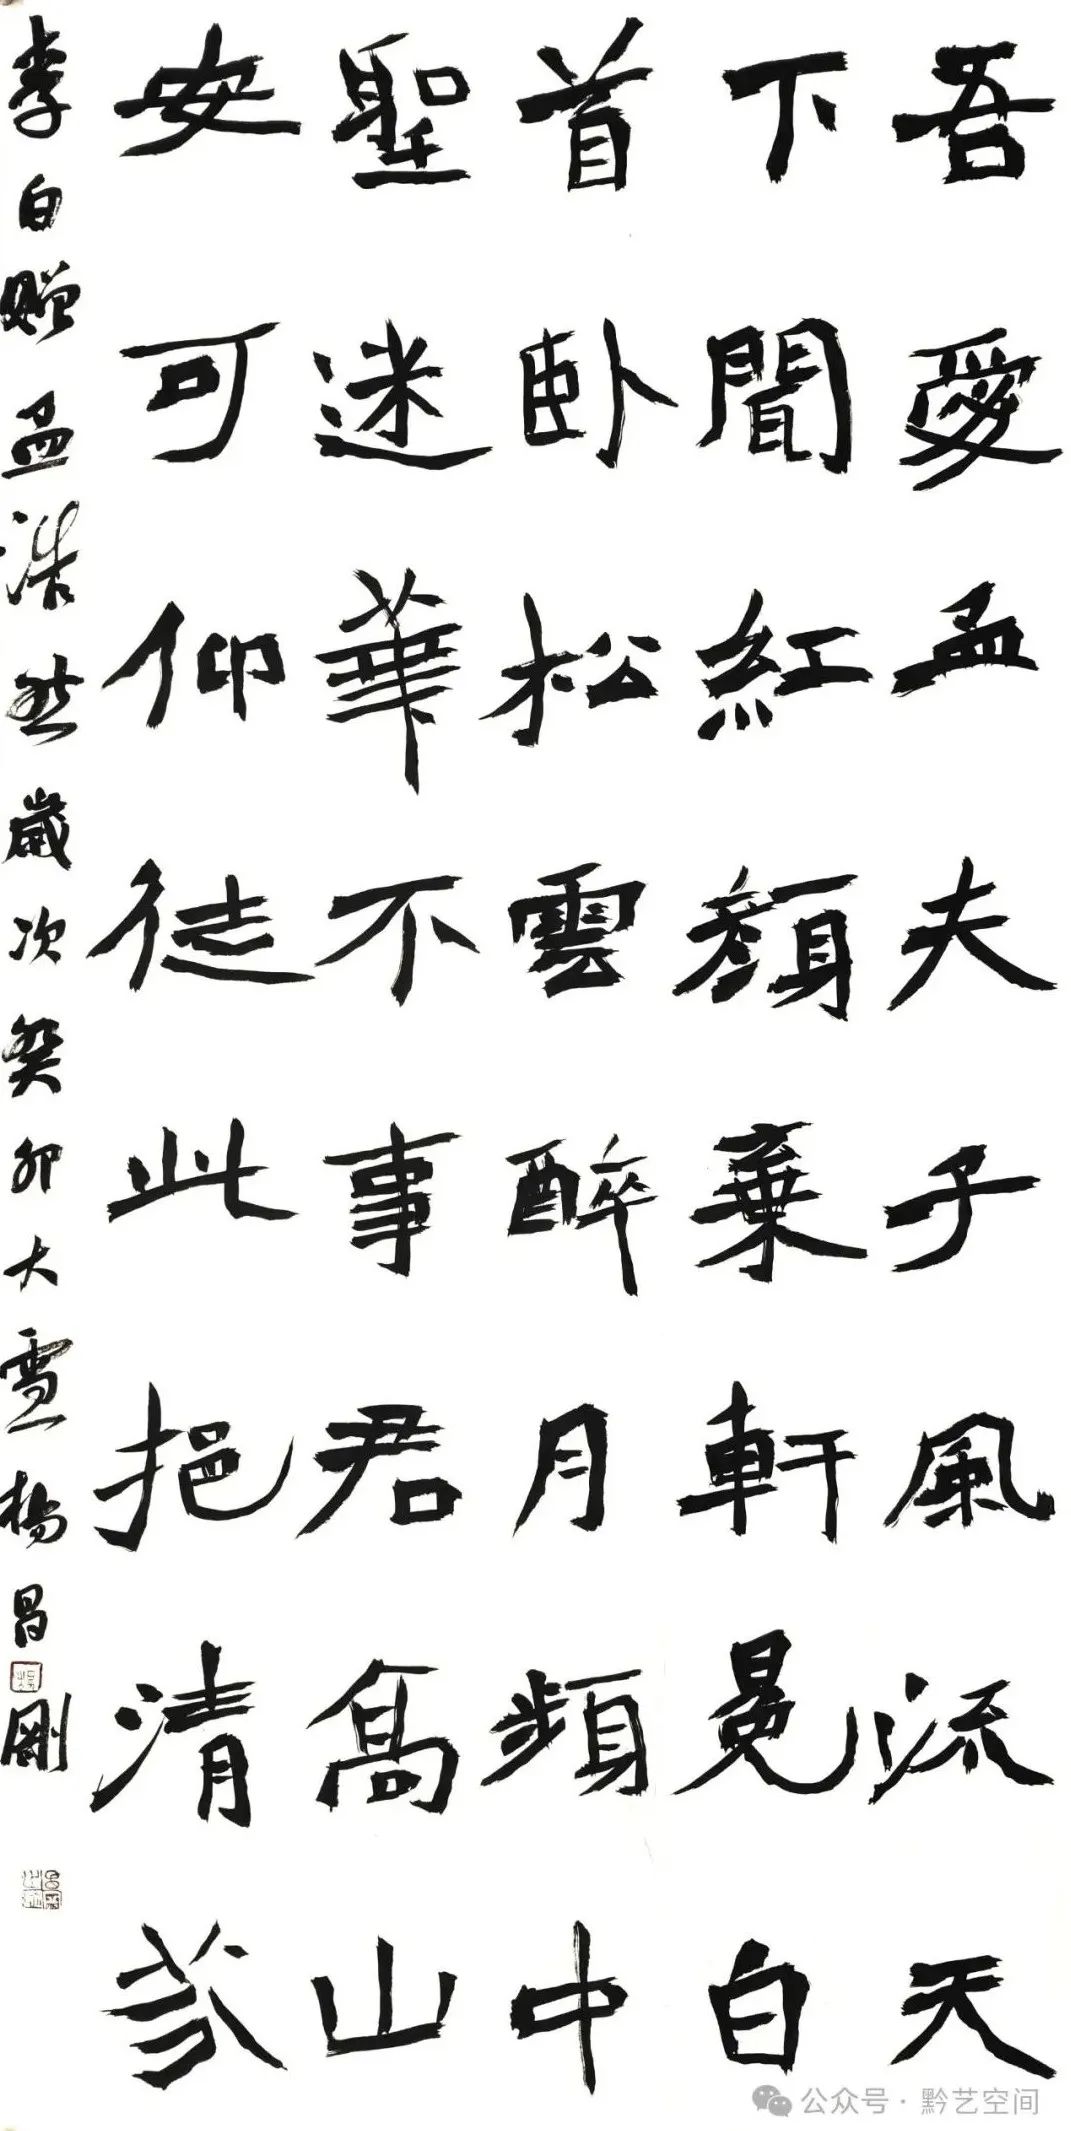 吾愛孟夫子風流天
下聞紅顏棄軒冕白
首卧松雲醉月頻中
聖迷華不事君高山
安可仰徒此挹清芬
李白贈孟浩然歲次癸卯大雪楊昌剛
公众号·黔艺空间